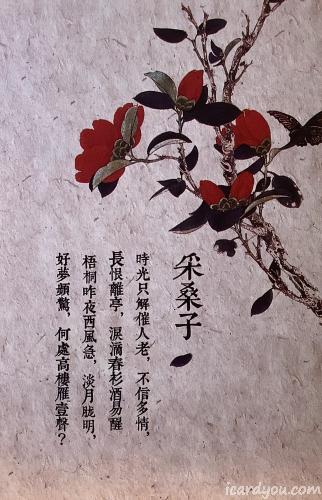 采桑子
時光只解催人老，不信多情，
長恨離亭，淚滴春杉酒易醒
梧桐昨夜西風急，淡月胧明，
好夢頻驚，何處高樓雁壹聲？
icardyou.com